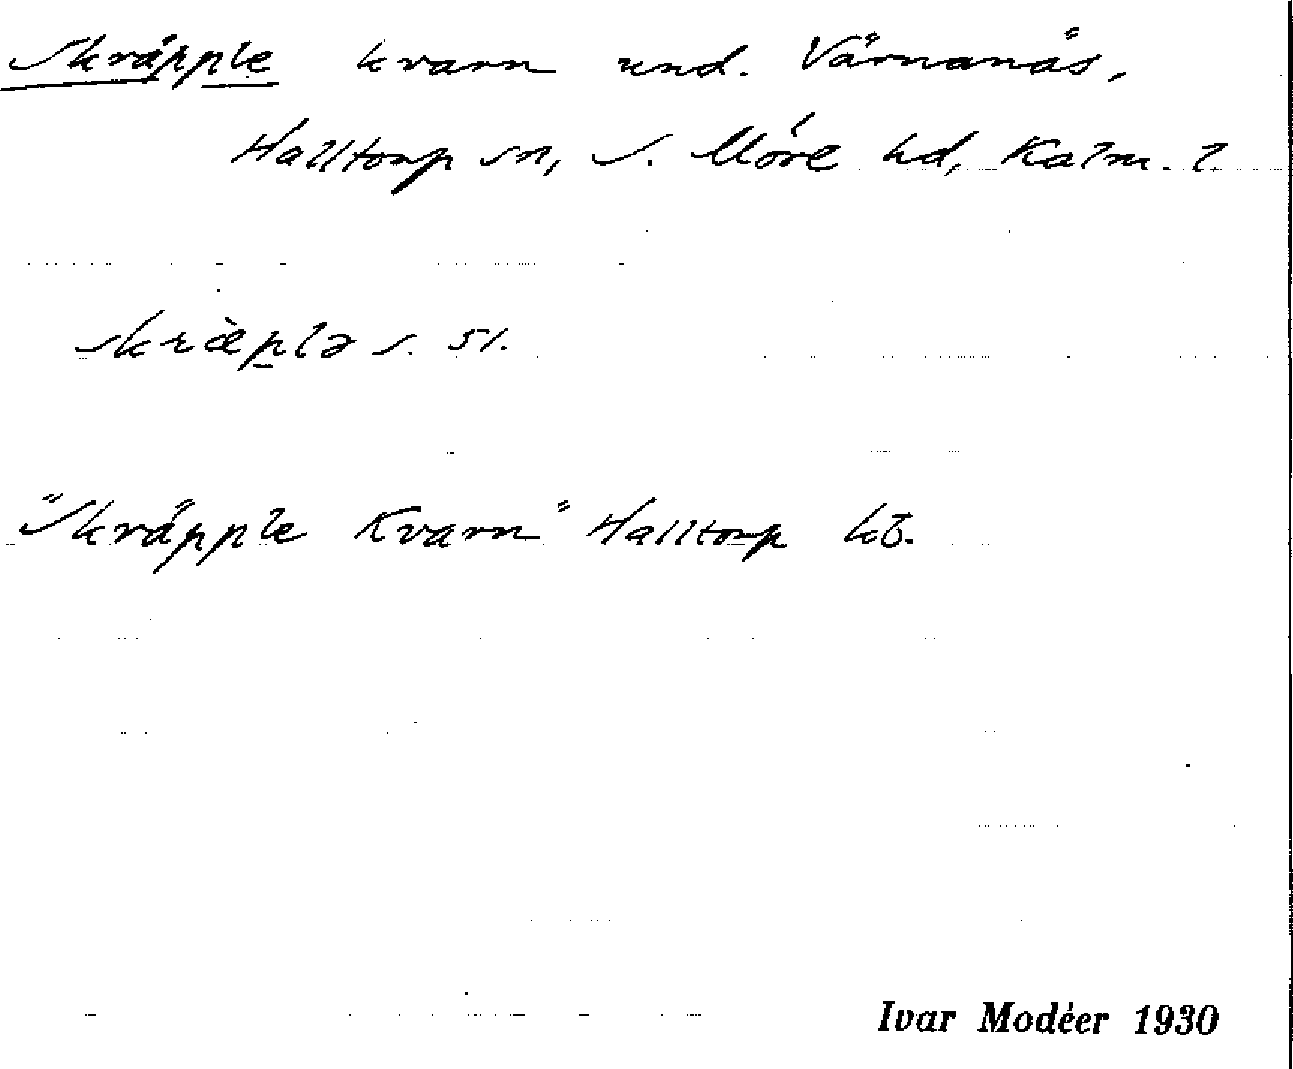 Skräpple kvarn und. Värnanäs,
Halltorp sn, S. Möre hd, Kalm. l.
skræ̀plə s. 51.
"Skräpple Kvarn" Halltorp kb.
Ivar Modéer 1930